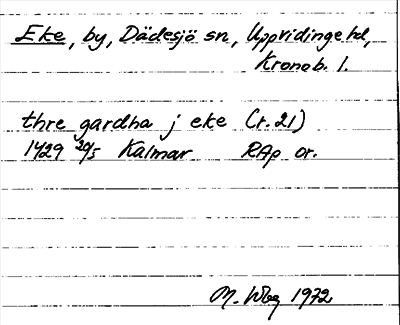 Eke, by, Dädesjö sn, Uppvidinge hd,
Kronob. l.
thre gardha j eke (r. 21)
1429 20/5 Kalmar RAp or.
M. Wbg 1972